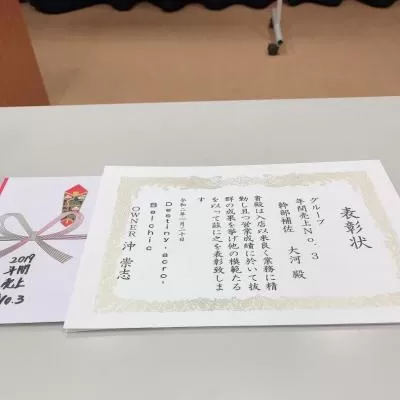 表彰状
グループ
年間売上No.3
幹部補佐　大河 殿
貴殿は入店以来良く業務に精
勤し且つ営業成績に於いて抜
群の成果を挙げ他の模範たる
を以って茲に之を表彰致しま
す
令和二年一月二十日
Destiny,acro,
Belchic
OWNER 沖 崇志
2019
年間
売上
No.3